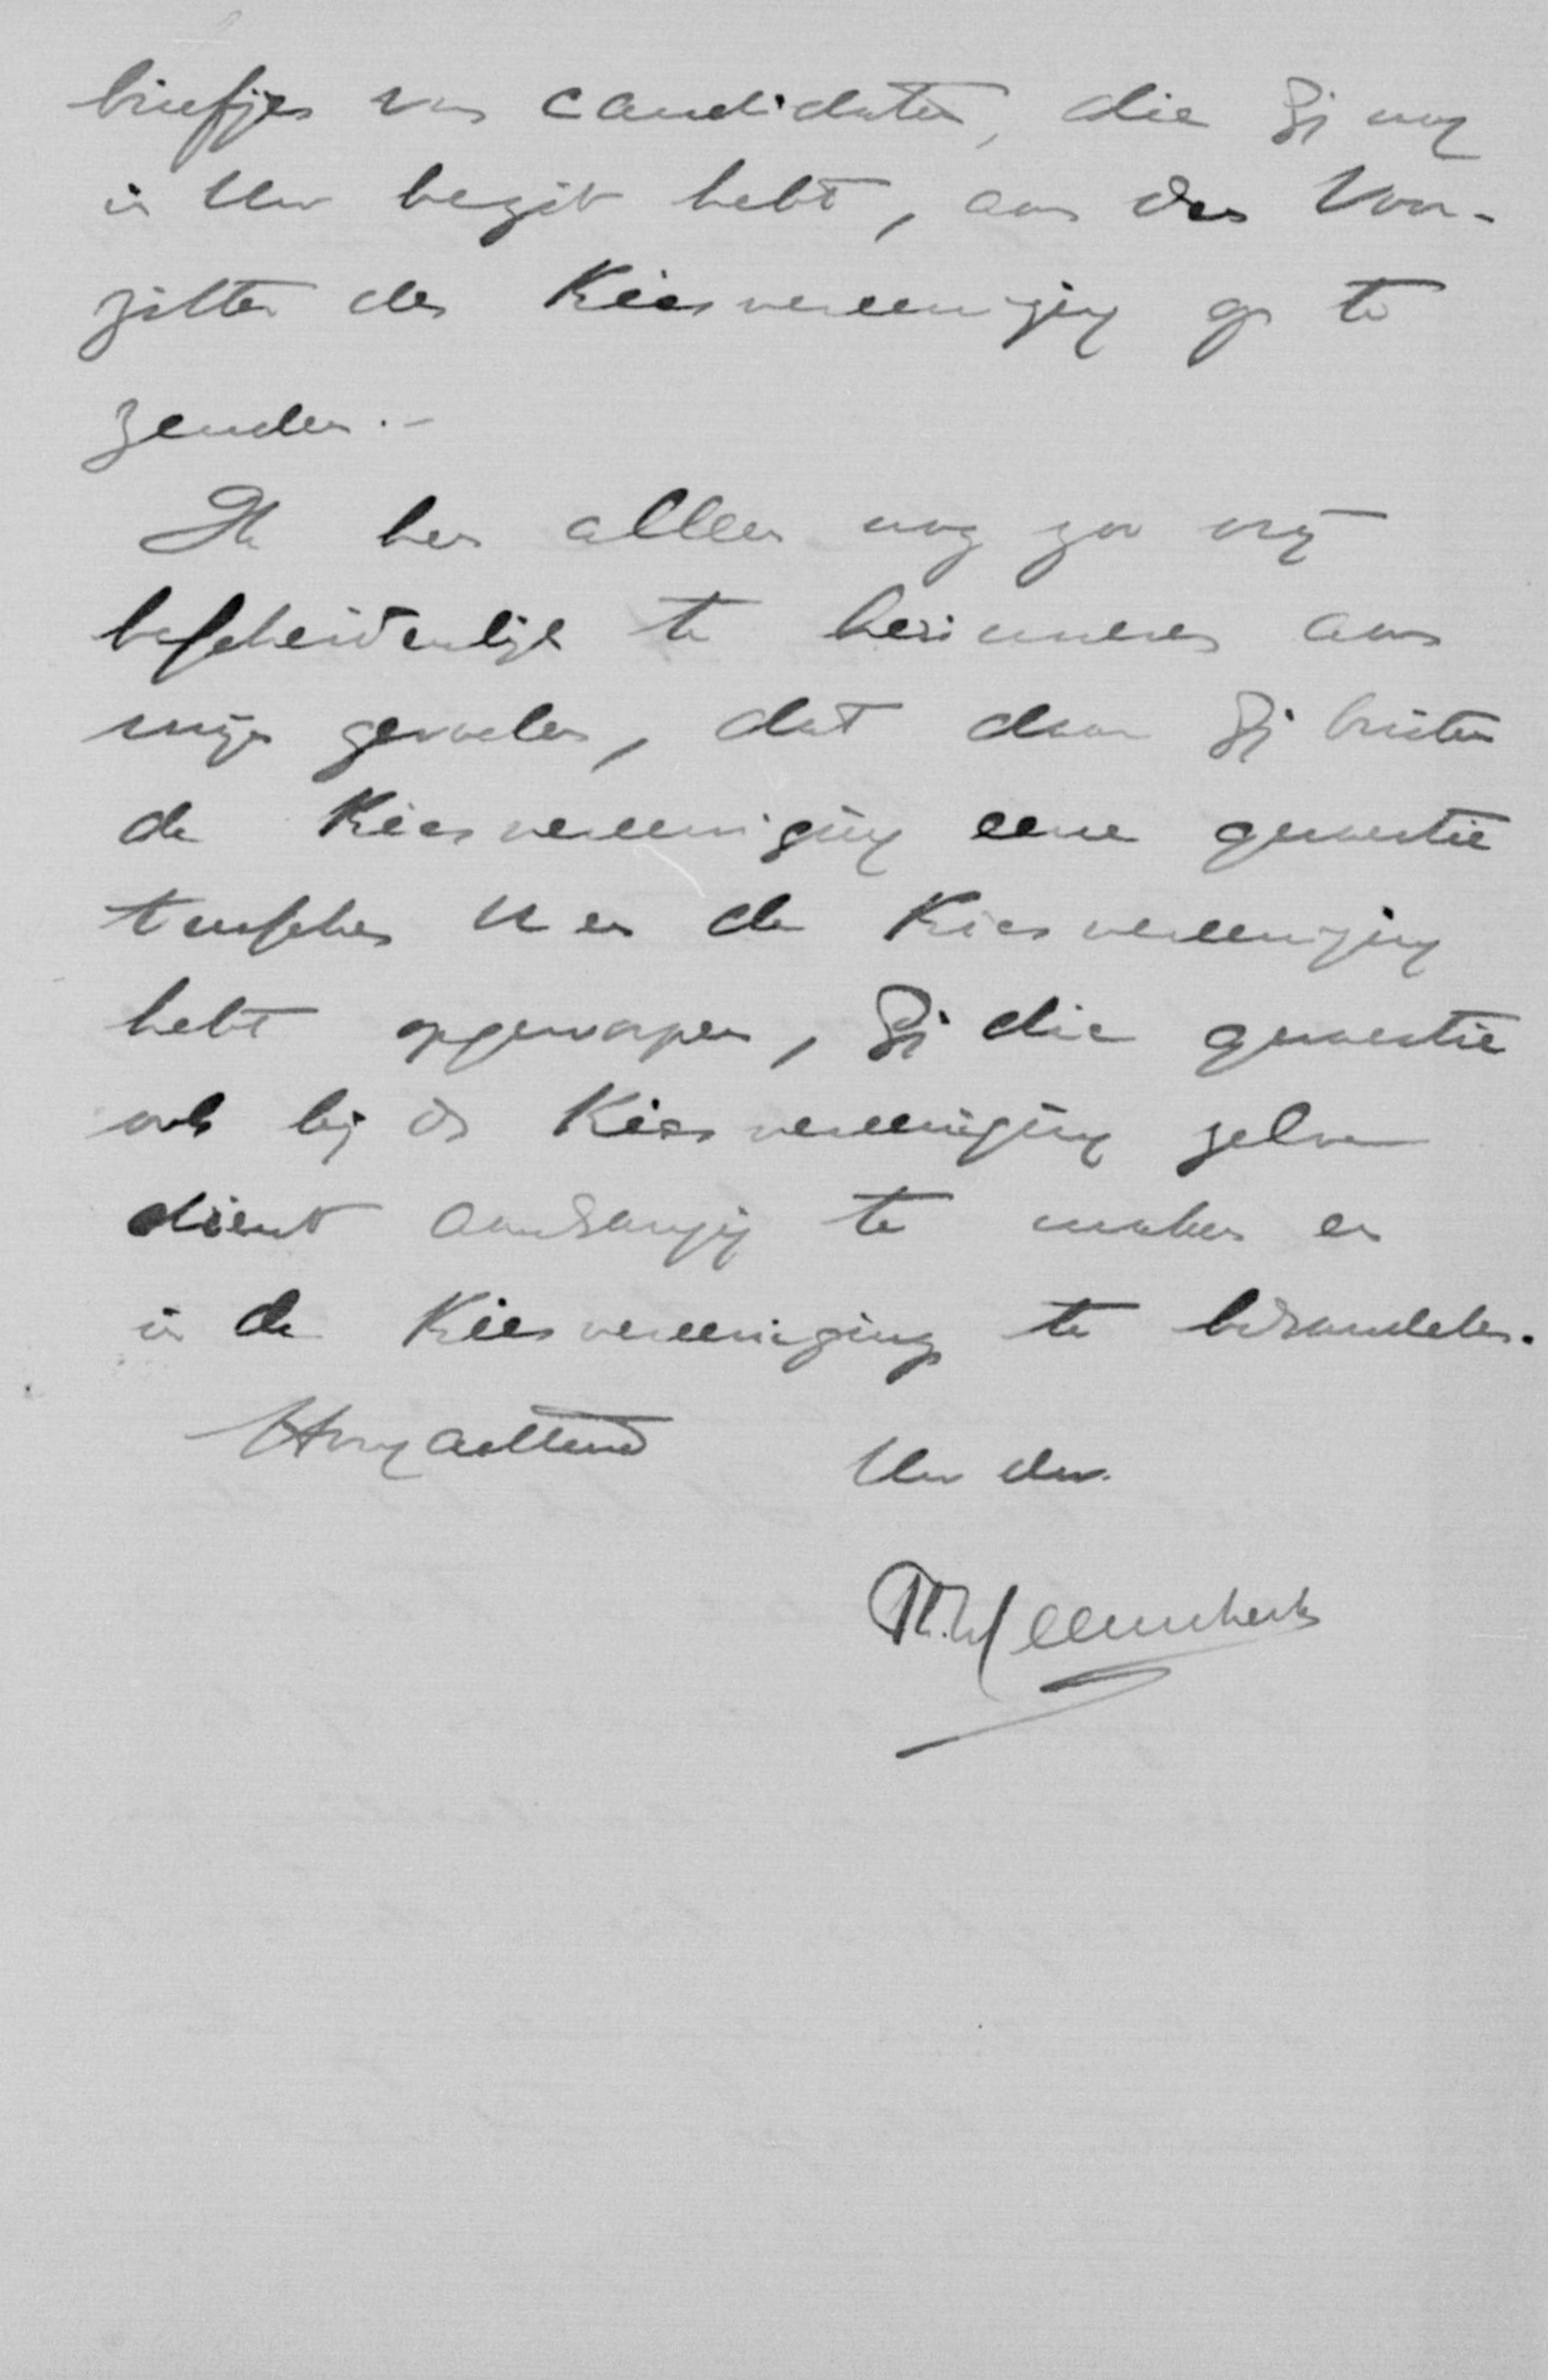 briefjes van candidaten, die Gij nog
in Uw bezit hebt, aan den Voor-
zitter der Kiesvereeniging op te
zenden.-
Ik ben alleen nog zoo vrij
bescheidenlijk te herinneren aan
mijn gevoelen, dat daar Gij buiten
de Kiesvereeniging eene quaestie
tusschen U en de Kiesvereeniging
hebt opgeworpen, Gij die quaestie
ook bij de Kiesvereeniging zelve
dient aanhangig te maken en
in de Kiesvereeniging te behandelen.
Hoogachtend
Uw dw.
Th. Heemskerk